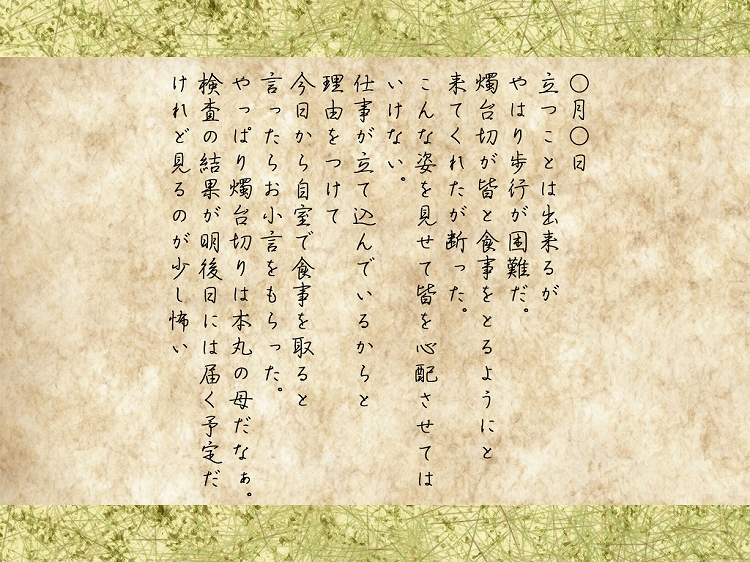 〇月〇日
立つことは出来るが
やはり歩行が困難だ。
燭台切が皆と食事をとるようにと
来てくれたが断った。
こんな姿を見せて皆を心配させては
いけない。
仕事が立て込んでいるからと
理由をつけて
今日から自室で食事を取ると
言ったらお小言をもらった。
やっぱり燭台切りは本丸の母だなぁ。
検査の結果が明後日には届く予定だ
けれど見るのが少し怖い